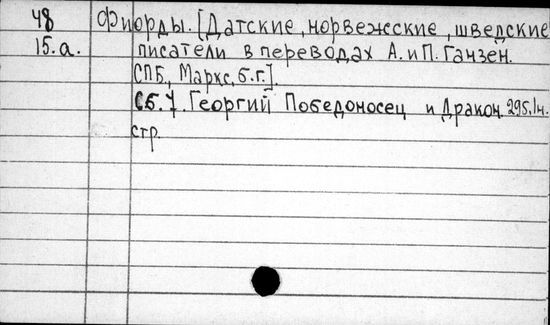 48 Фиорды. [Датские, норвежские, шведские
15.а. писатели в переводах А. и П. Ганзен.
СПБ., Маркс, б.г.].
Сб. 7. Георгий Победоносец и Дракон. 295, 1 н.
стр.